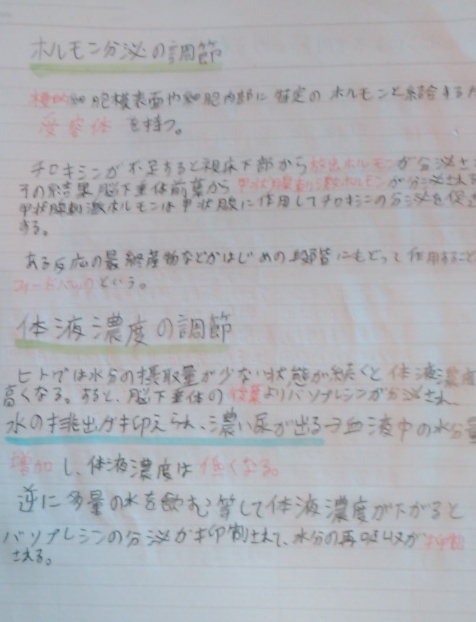 ホルモン分泌の調節
標的細胞膜表面や細胞内部に特定のホルモンと結合する
受容体を持つ。
チロキシンが不足すると視床下部から放出ホルモンが分泌さ
その結果脳下垂体前葉から甲状腺刺激ホルモンが分泌される
甲状腺刺激ホルモンは甲状腺に作用してチロキシンの分泌を促進
する。
ある反応の最終産物などがはじめの段階にもどって作用すること
フィードバックという。
体液濃度の調節
ヒトでは水分の摂取量が少ない状態が続くと体液濃度
高くなる。すると、脳下垂体の後葉よりバソプレシンが分泌され
水の排出が抑えられ、濃い尿が出る→血液中の水分量
増加し、体液濃度は低くなる。
逆に多量の水を飲む等して体液濃度が下がると
バソプレシンの分泌が抑制されて、水分の再吸収が抑制
される。